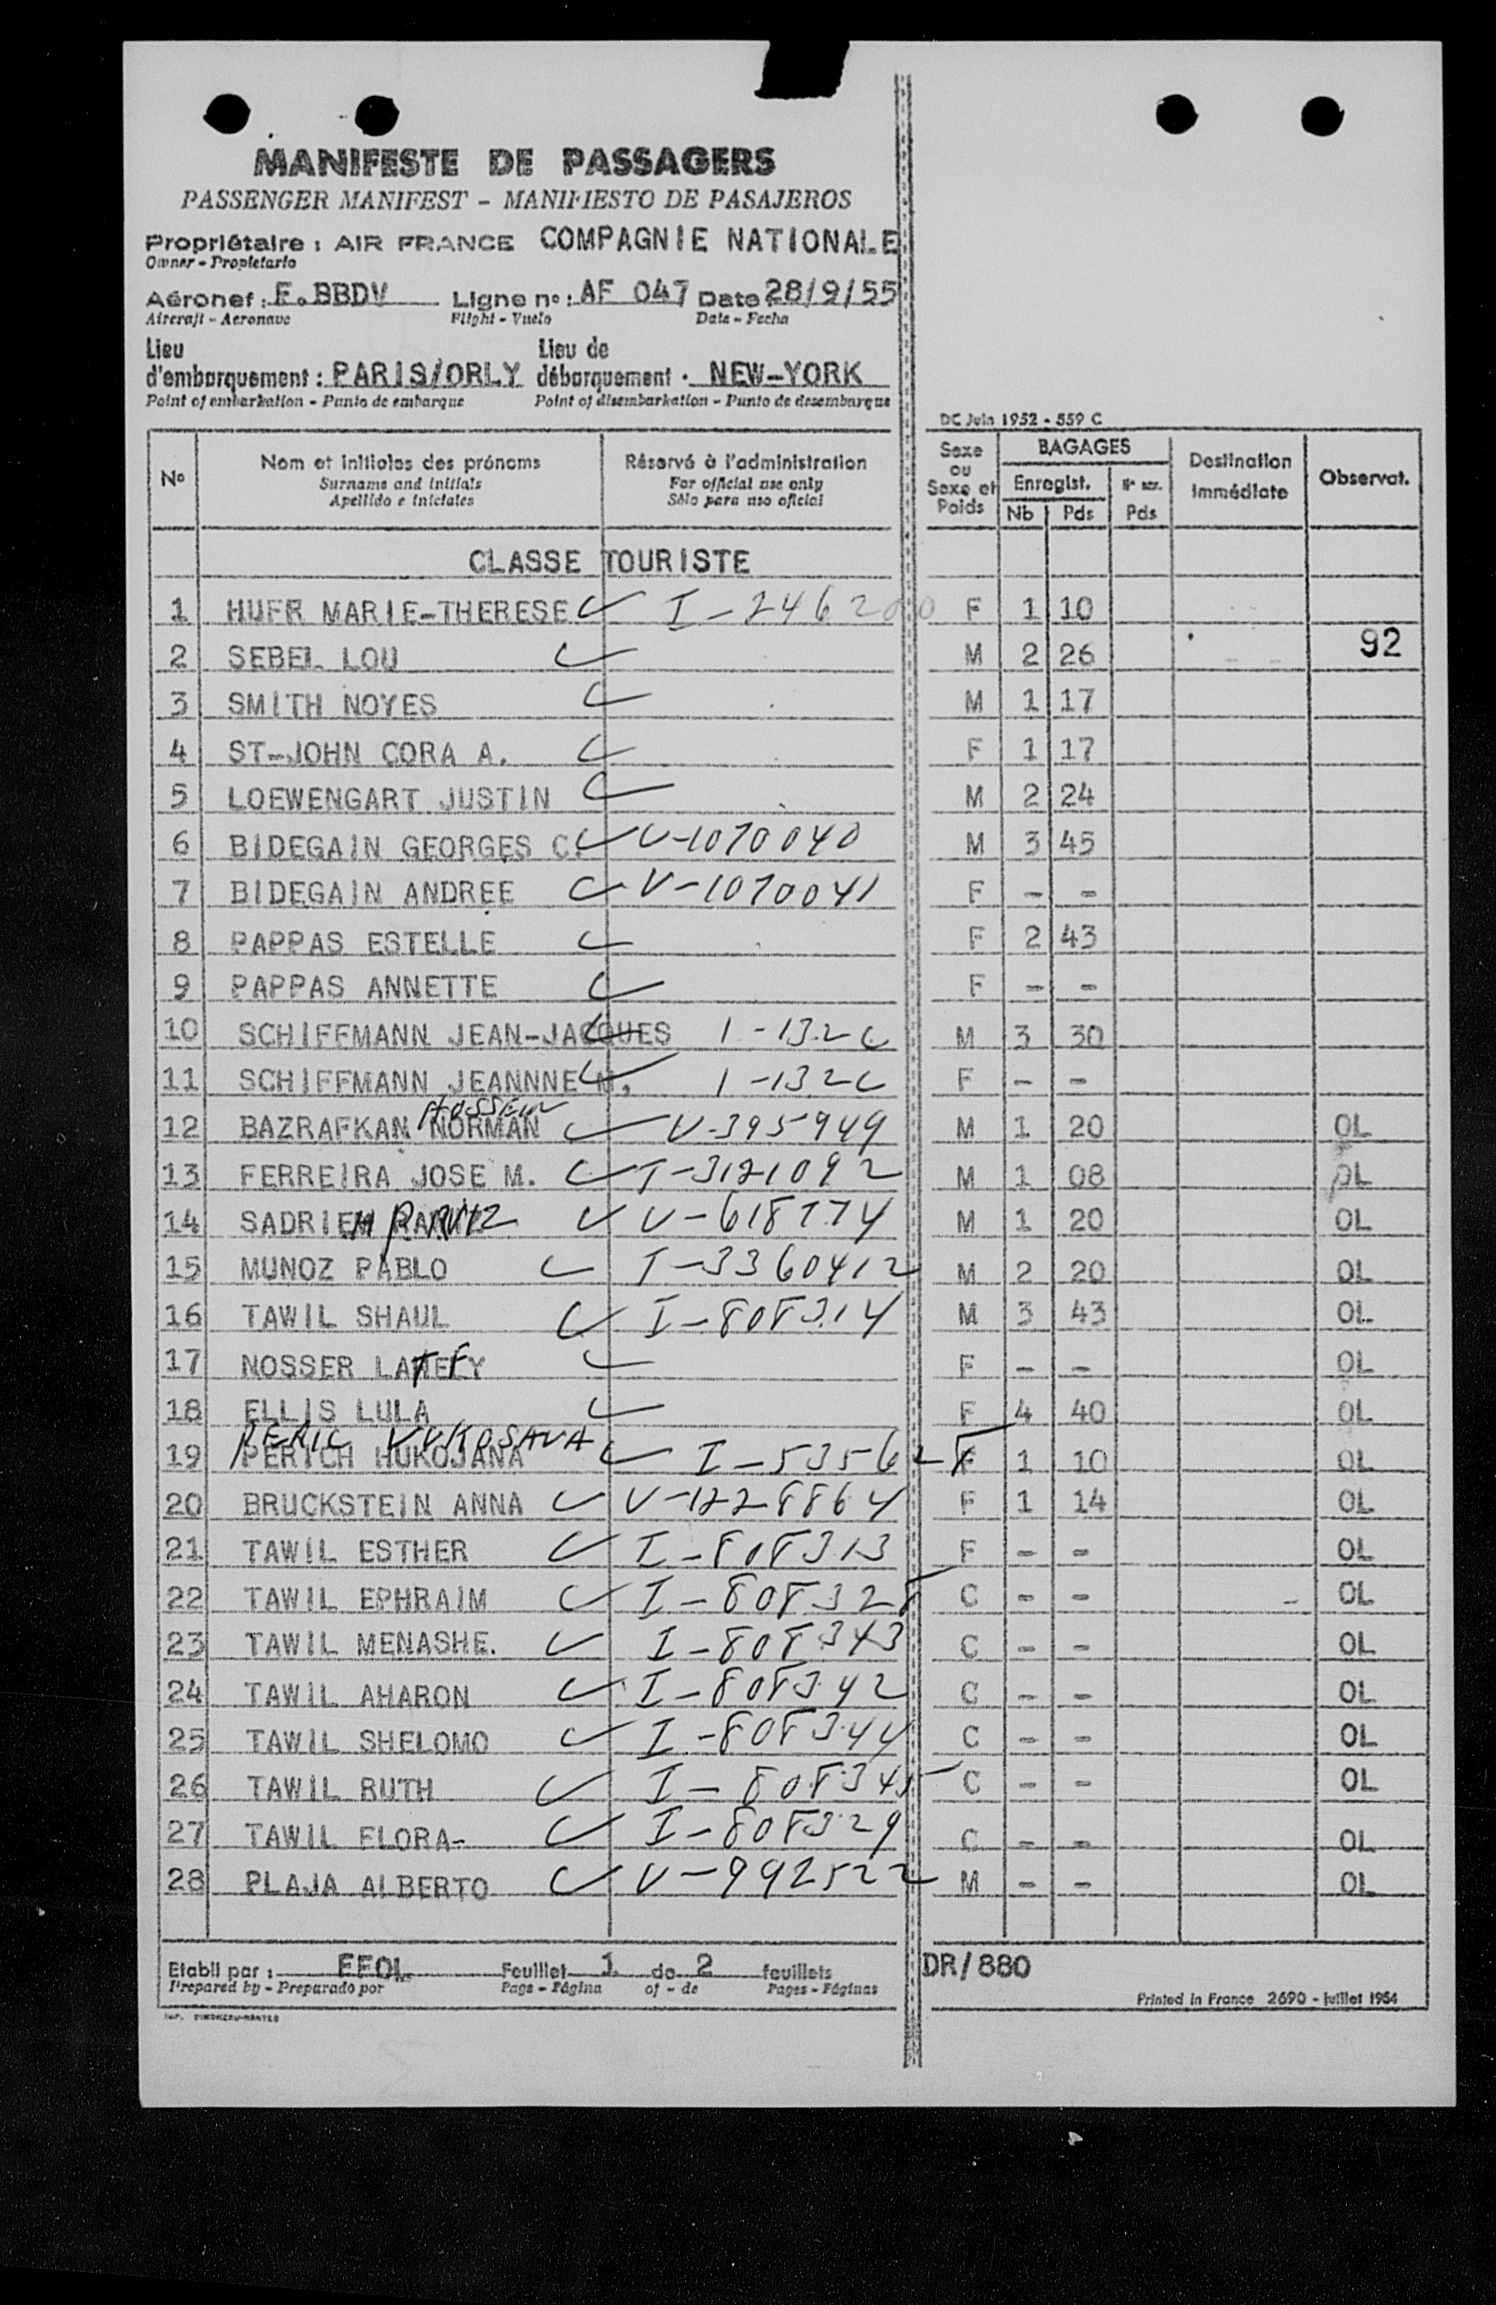 MANIFESTE DE PASSAGERS
PASSENGER MANIFEST - MANIFIESTO DE PASAJEROS
Propriétaire : AIR FRANCE COMPAGNIE NATIONALE
Owner - Propietario
Aéronef : F.BBDV Ligne no : AF 047 Date 28/9/55
Aircraft - Aeronave Flight - Vuelo Date - Fecha
Lieu d'embarquement : PARIS/ORLY Lieu de débarquement . NEW-YORK
Point of embarkation - Punto de embarque Point of disembarkation - Punto de desembarque
DC Juin 1952 - 559 C
No Nom et initiales des prénoms Réservé à l'administration Sexe ou Sexe et Poids BAGAGES Destination Immédiate Observat.
Surname and initials For official use only Enregist. Nb Pds Pds
Apellido e iniciales Sólo para uso oficial
CLASSE TOURISTE
1 HUFR MARIE-THERESE I-246200 F 1 10
2 SEBEL LOU M 2 26 92
3 SMITH NOYES M 1 17
4 ST-JOHN CORA A. F 1 17
5 LOEWENGART JUSTIN M 2 24
6 BIDEGAIN GEORGES C. V-1070040 M 3 45
7 BIDEGAIN ANDREE V-1070041 F - -
8 PAPPAS ESTELLE F 2 43
9 PAPPAS ANNETTE F - -
10 SCHIFFMANN JEAN-JACQUES I-132C M 3 30
11 SCHIFFMANN JEANNNE M. I-132C F - -
HOSSEIN
12 BAZRAFKAN NORMAN V-395949 M 1 20 OL
13 FERREIRA JOSE M. T-3121092 M 1 08 OL
14 SADRIEH PARVIZ V-618774 M 1 20 OL
15 MUNOZ PABLO T-3360412 M 2 20 OL
16 TAWIL SHAUL I-808314 M 3 43 OL
17 NOSSER LATEFY F - - OL
18 ELLIS LULA F 4 40 OL
PERIC VUKOSAVA
19 PERICH HUKOJANA I-535628 F 1 10 OL
20 BRUCKSTEIN ANNA V-1228864 F 1 14 OL
21 TAWIL ESTHER I-808313 F - - OL
22 TAWIL EPHRAIM I-808328 C - - OL
23 TAWIL MENASHE. I-808343 C - - OL
24 TAWIL AHARON I-808342 C - - OL
25 TAWIL SHELOMO I-808344 C - - OL
26 TAWIL RUTH I-808345 C - - OL
27 TAWIL FLORA- I-808329 C - - OL
28 PLAJA ALBERTO V-992522 M - - OL
Etabli par : EFOL Feuillet 1 de 2 feuillets DR/880
Prepared by - Preparado por Page - Página of - de Pages - Páginas
Printed in France 2690 - juillet 1954